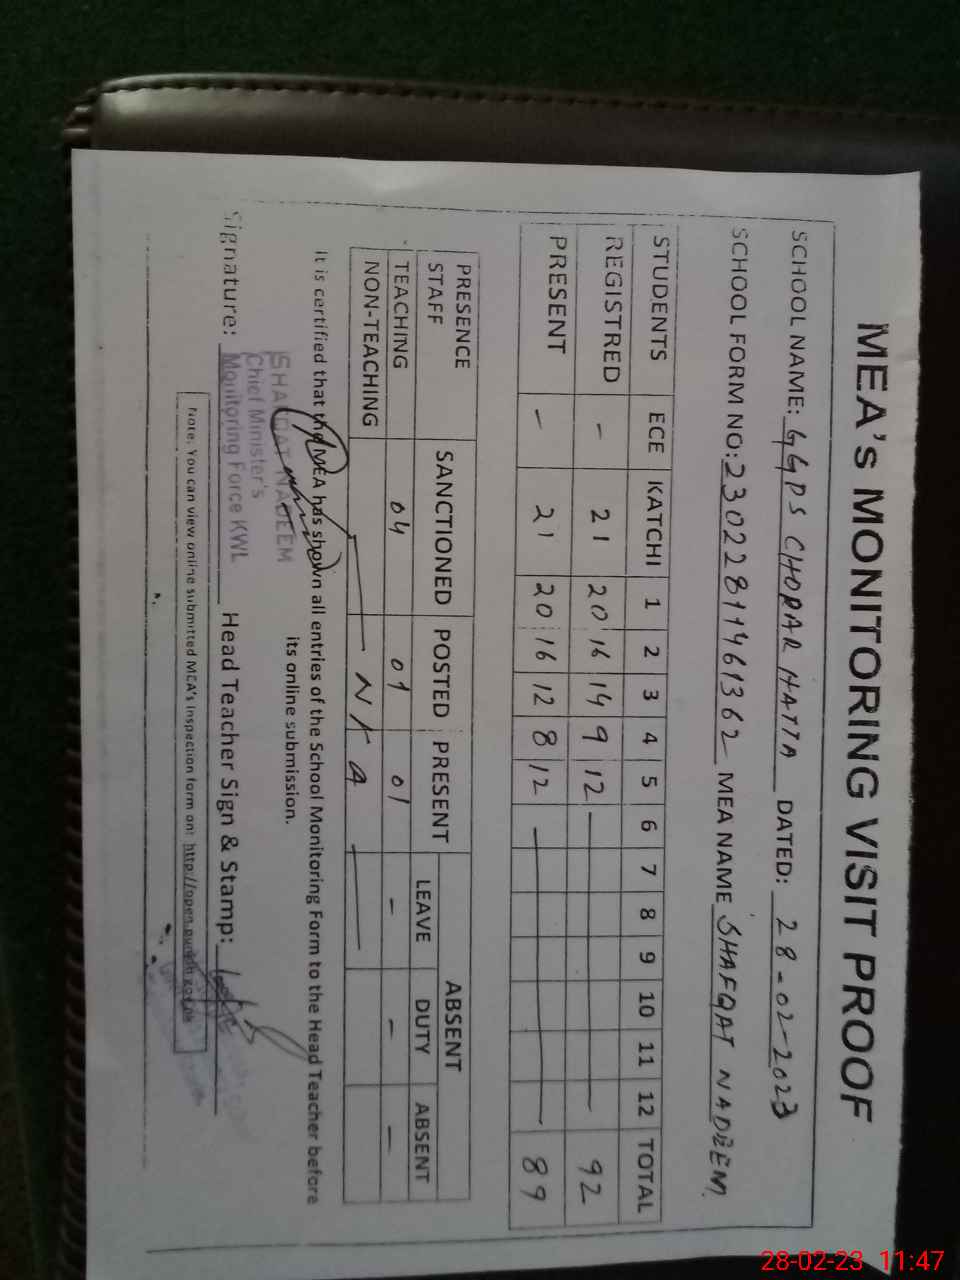 MEA's MONITORING VISIT PROOF
SCHOOL NAME: GGPS CHOPAR HATTA DATED: 28-02-2023
SCHOOL FORM NO: 23022811461362 MEA NAME SHAFQAT NADEEM
STUDENTS ECE KATCHI 1 2 3 4 5 6 7 8 9 10 11 12 TOTAL
REGISTRED - 21 20 16 14 9 12 — 92
PRESENT - 21 20 16 12 8 12 — 89
PRESENCE STAFF SANCTIONED POSTED PRESENT ABSENT
LEAVE DUTY ABSENT
TEACHING 04 01 01 - - -
NON-TEACHING — N/A —
It is certified that the MEA has shown all entries of the School Monitoring Form to the Head Teacher before
its online submission.
SHAFQAT NADEEM
Chief Minister's
Monitoring Force KWL
Signature: Head Teacher Sign & Stamp:
Note: You can view online submitted MCA's Inspection form on: http://open.punjab.gov.pk
28-02-23 11:47